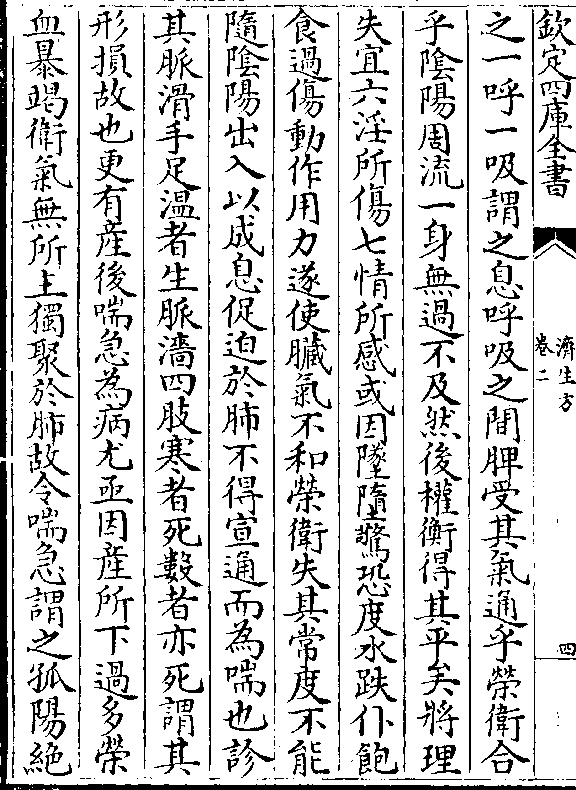 欽定四庫全書
濟生方
卷二
四
之一呼一吸謂之息呼吸之間脾受其氣通乎榮衛合
乎陰陽周流一身無過不及然後權衡得其平矣將理
失宜六淫所傷七情所感或因墜墮驚恐度水跌仆飽
食過傷動作用力遂使臟氣不和榮衛失其常度不能
隨陰陽出入以成息促迫於肺不得宣通而為喘也診
其脈滑手足溫者生脈濇四肢寒者死數者亦死謂其
形損故也更有産後喘急為病尤亟因産所下過多榮
血暴竭衛氣無所主獨聚於肺故令喘急謂之孤陽絶